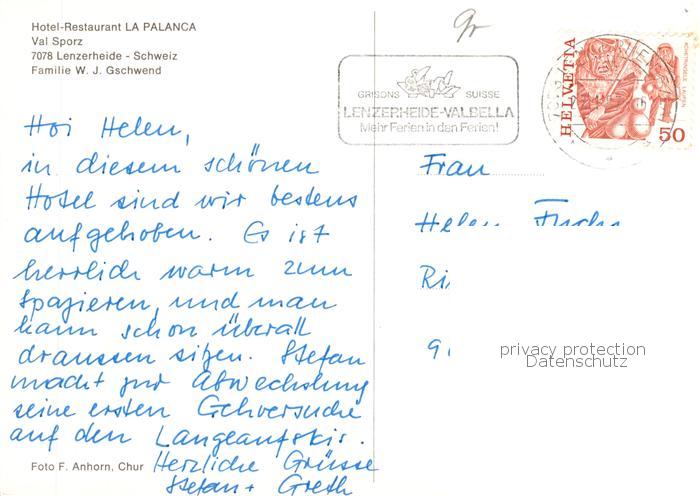 Hotel-Restaurant LA PALANCA
Val Sporz
7078 Lenzerheide - Schweiz
Familie W. J. Gschwend
Hoi Helen,
in diesem schönen
Hotel sind wir bestens
aufgehoben. Es ist
herrlich warm zum
spazieren, und man
kann schon überall
draussen sitzen. Stefan
macht zur Abwechslung
seine ersten Gehversuche
auf den Langlaufskis.
Herzliche Grüsse
Stefan + Greth
Foto F. Anhorn, Chur
GRISONS SUISSE
LENZERHEIDE-VALBELLA
Mehr Ferien in den Ferien!
HELVETIA
50
Frau
Helen
privacy protection
Datenschutz